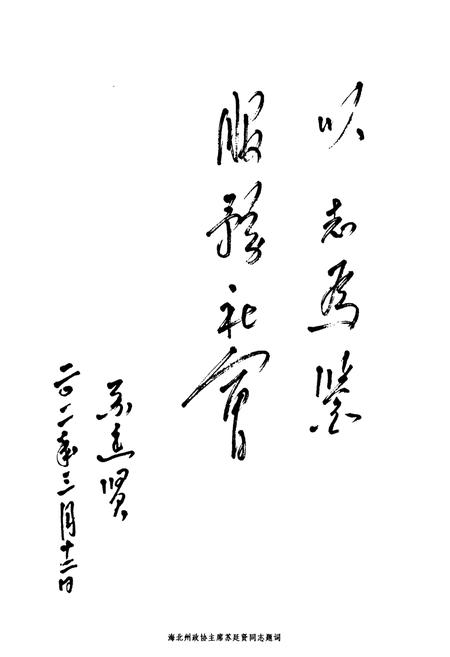 以志为鉴
服務社會
苏廷贤
二〇一二年三月十二日
海北州政协主席苏廷贤同志题词